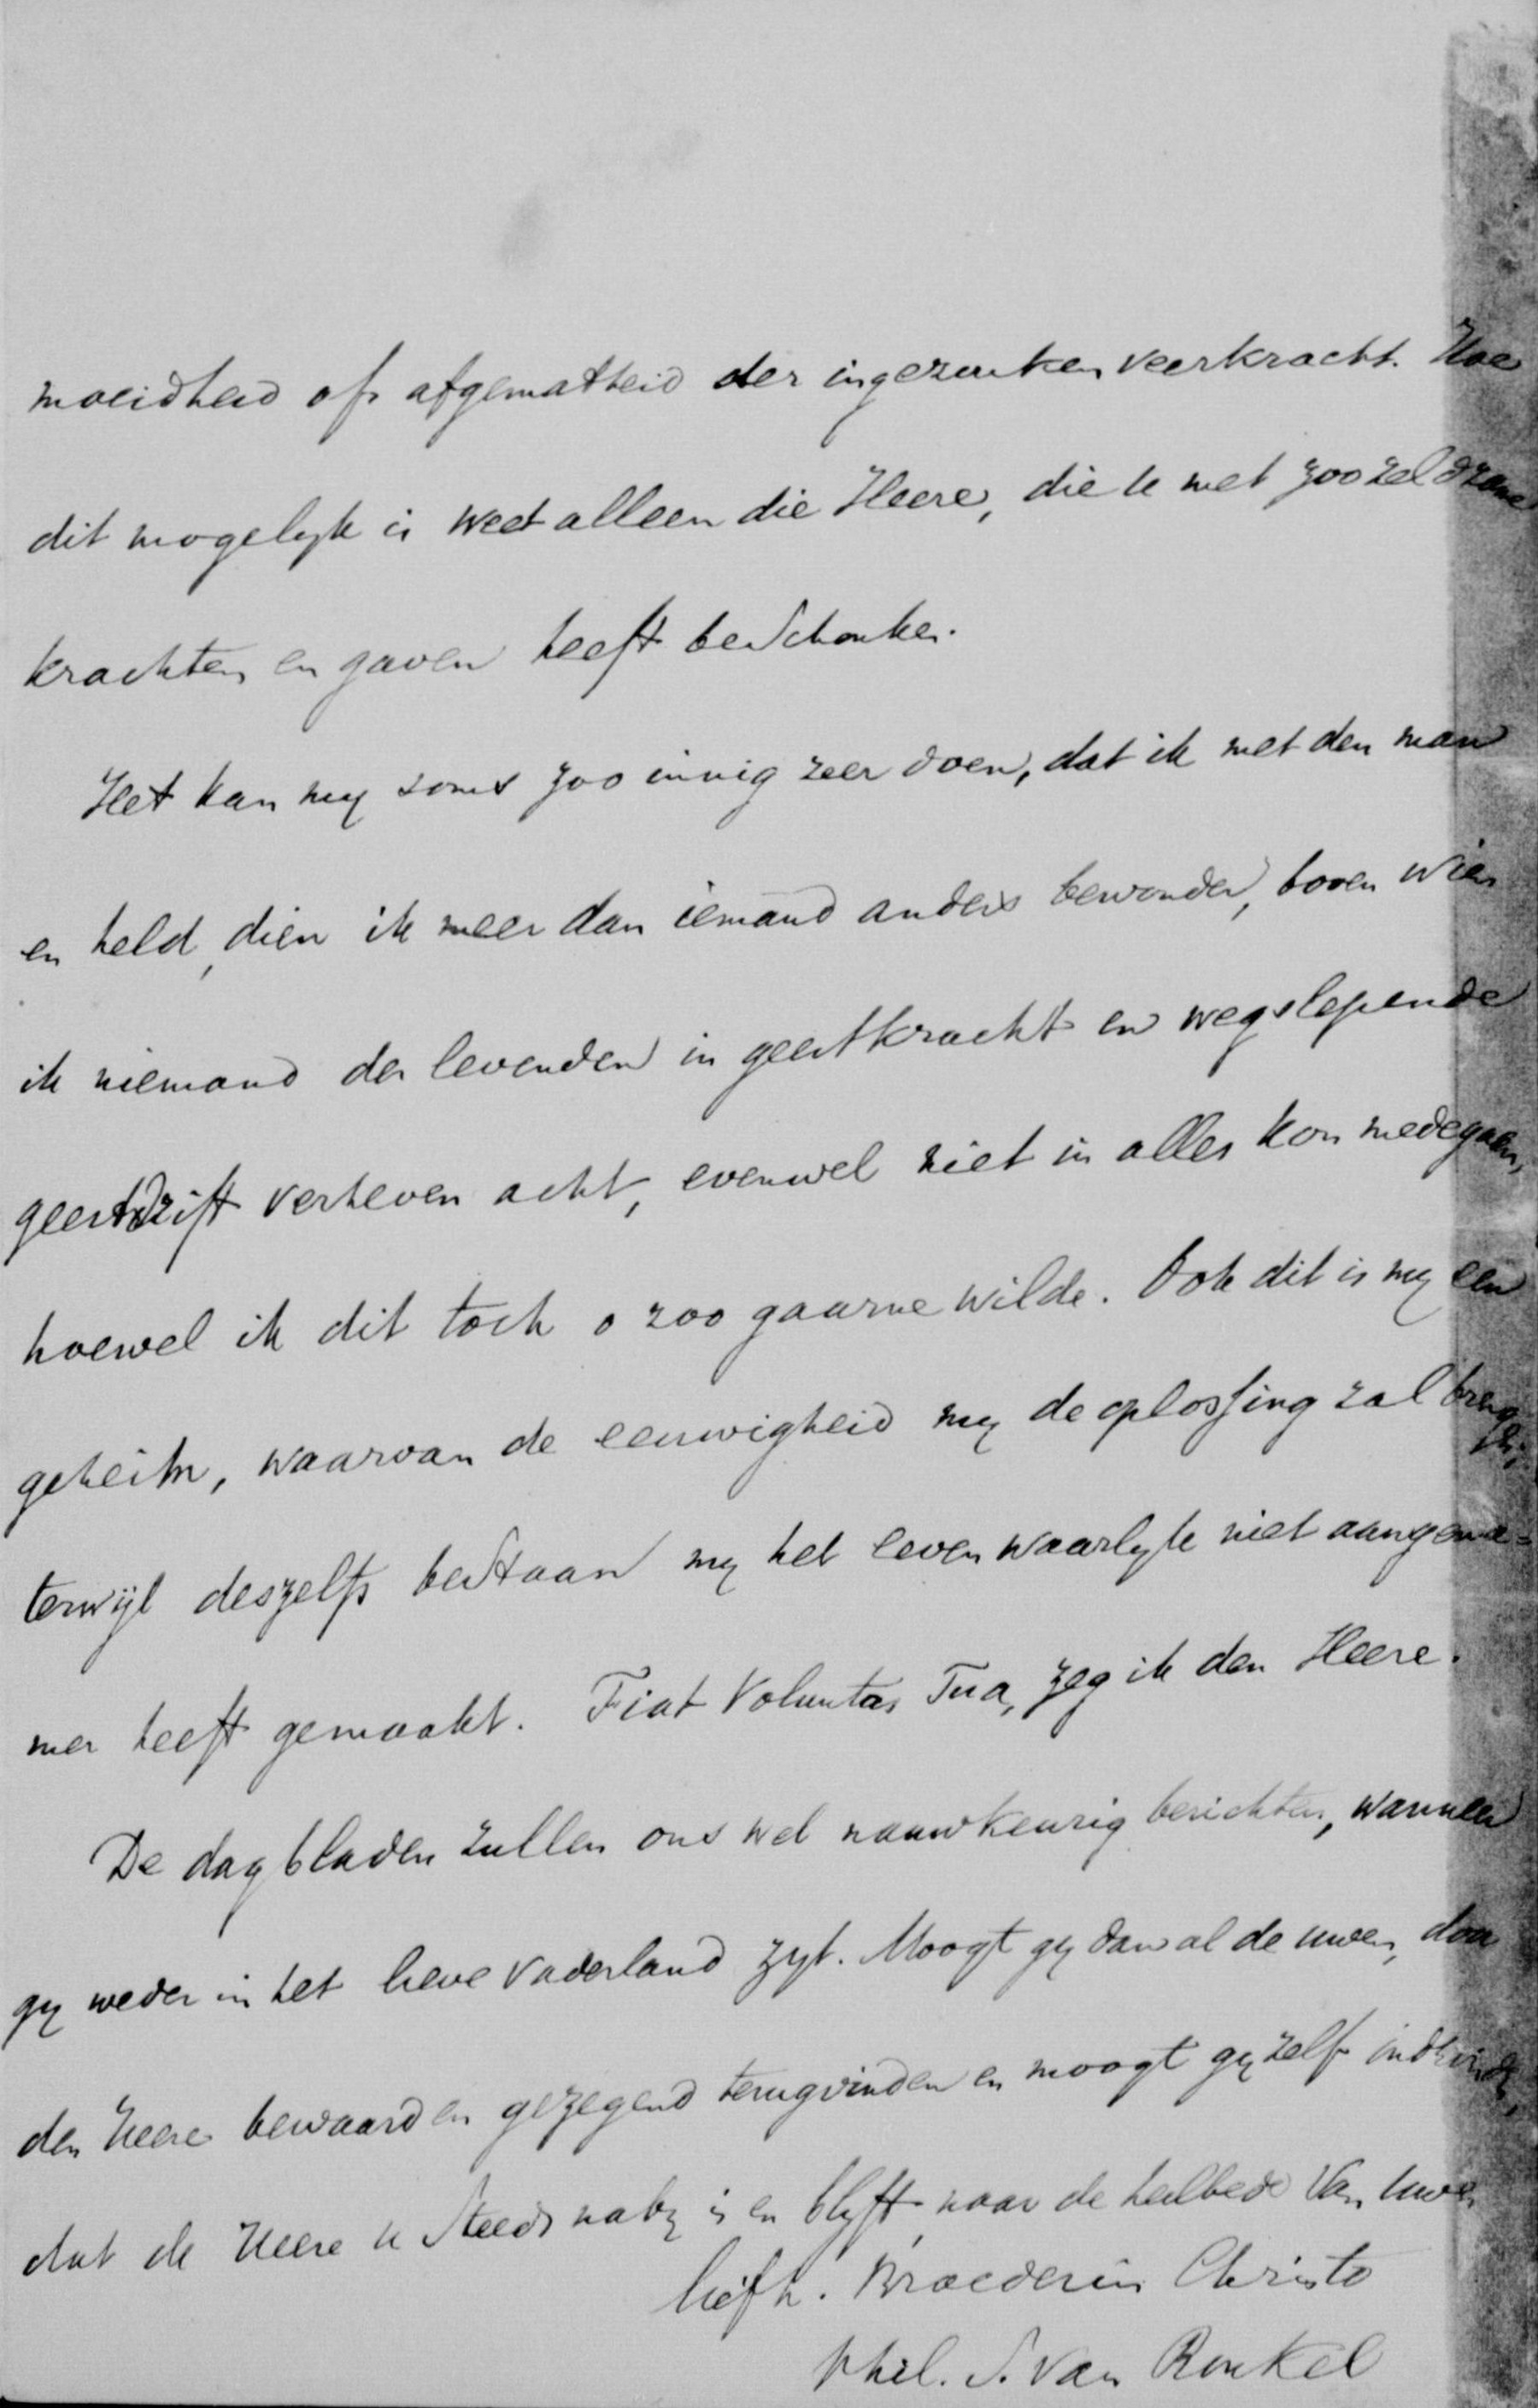 moeidheid of afgematheid der ingezonken veerkracht. Hoe
dit mogelyk is weet alleen die Heere, die U met zoo zeldzame
krachten en gaven heeft beschonken.
Het kan my soms zoo innig zeer doen, dat ik met den man
en held, dien ik meer dan iemand anders bewonder, boven wien
ik niemand der levenden in geestkracht en wegslepende
geestdrift verheven acht, evenwel niet in alles kon medegaan,
hoewel ik dit toch o zoo gaarne wilde. Ook dit is my een
geheim, waarvan de eeuwigheid my de oplossing zal brengen,
terwijl deszelfs bestaan my het leven waarlyk niet aangena=
mer heeft gemaakt. Fiat Voluntas Tua, zeg ik den Heere.
De dagbladen zullen ons wel nauwkeurig berichten, wanneer
gy weder in het lieve Vaderland zyt. Moogt gy dan al de uwen, door
den Heere bewaard en gezegend terugvinden en moogt gy zelf
dat de Heere U steeds naby is en blyft, naar de heilbede van Uwen
liefh. Broeder in Christo
Phil. S. van Ronkel